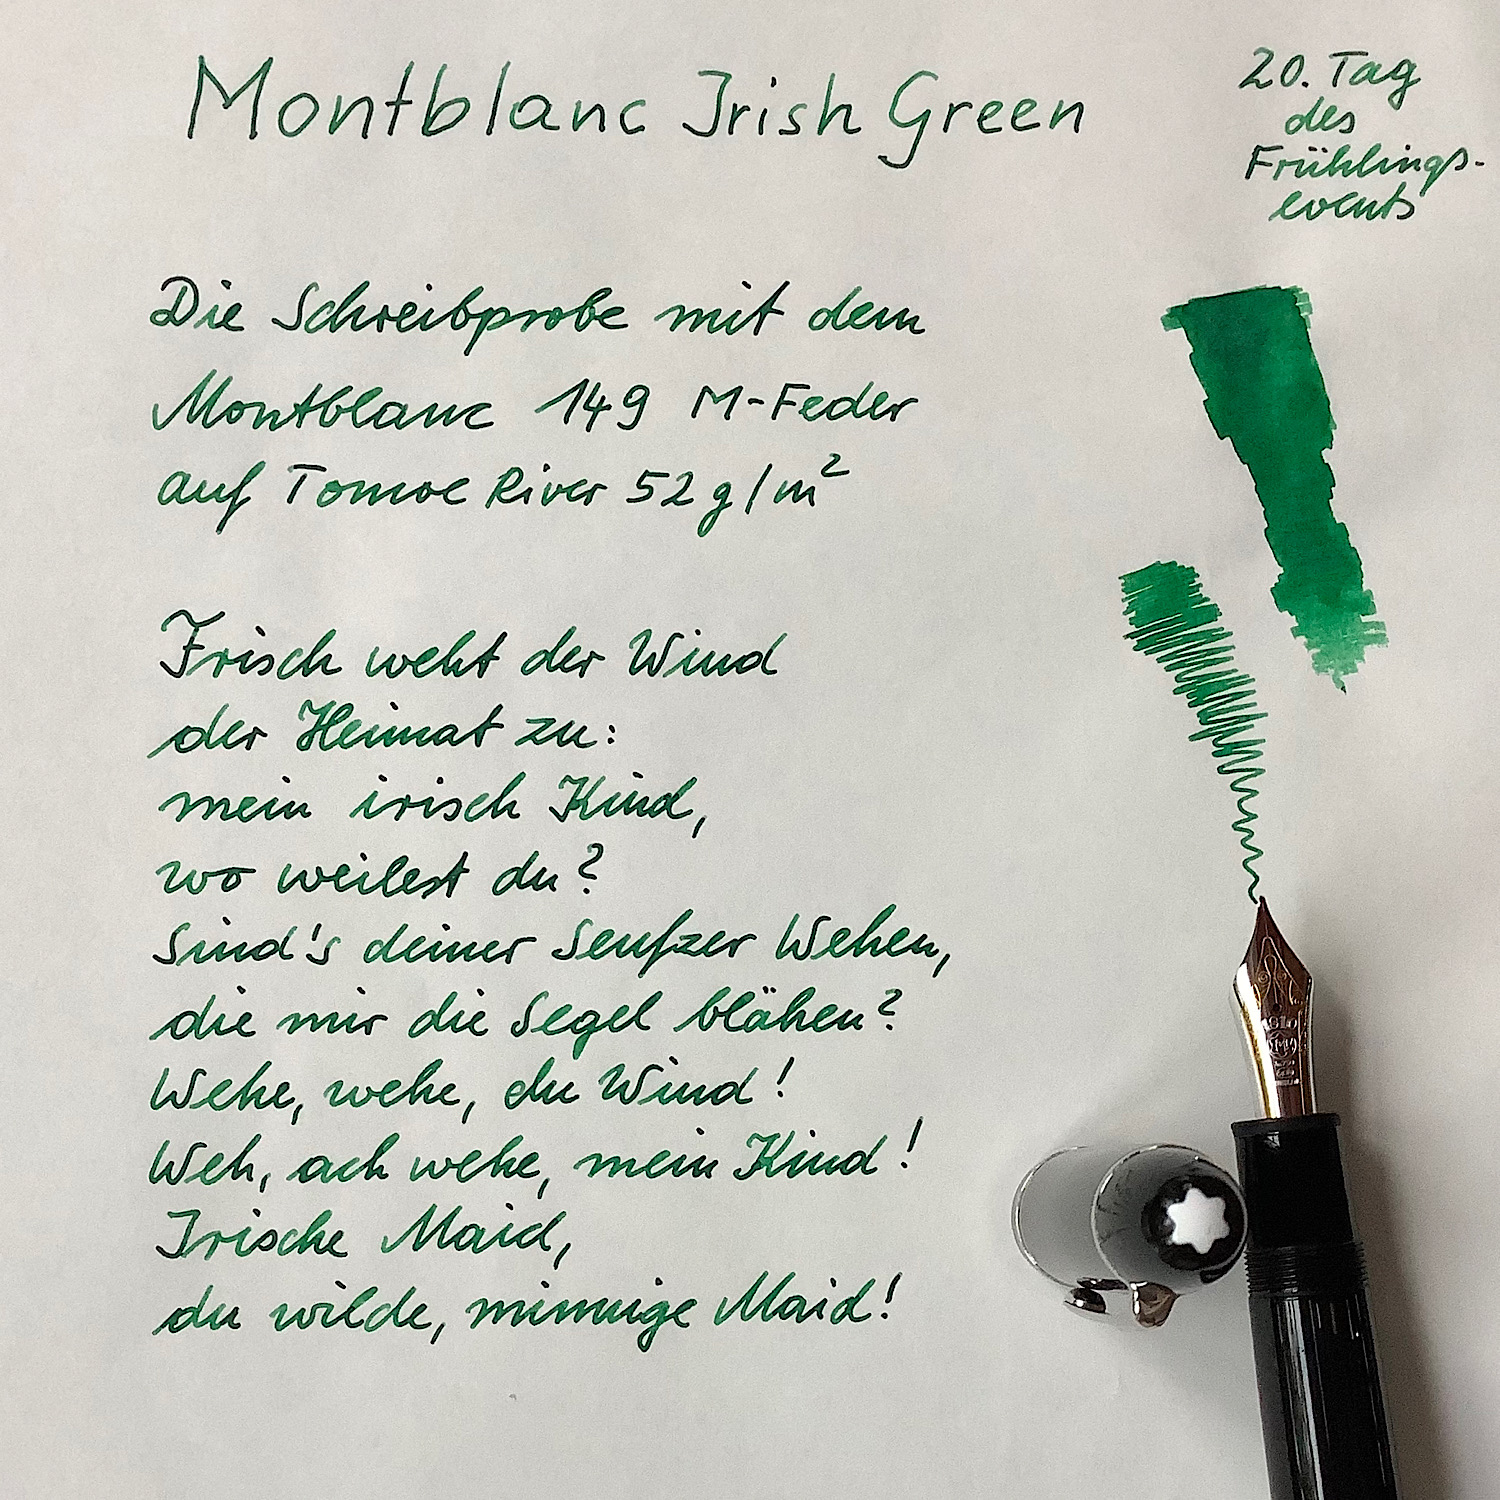 Montblanc Irish Green
20. Tag
des
Frühlings-
events
Die Schreibprobe mit dem
Montblanc 149 M-Feder
auf Tomoe River 52 g/m²
Frisch weht der Wind
der Heimat zu:
mein irisch Kind,
wo weilest du?
Sind's deiner Seufzer Wehen,
die mir die Segel blähen?
Wehe, wehe, du Wind!
Weh, ach wehe, mein Kind!
Irische Maid,
du wilde, minnige Maid!